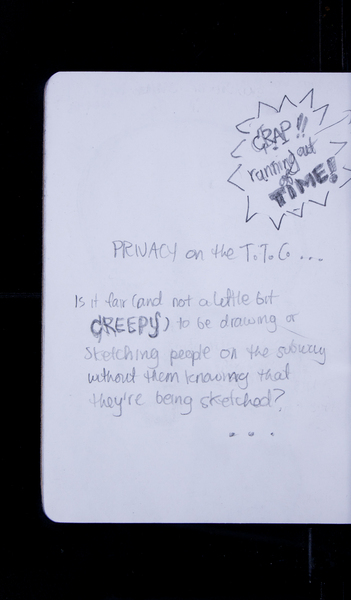 CRAP!!
running out
OF
TIME!
PRIVACY on the T.T.C. ...
Is it fair (and not a little bit
CREEPY) to be drawing or
sketching people on the subway
without them knowing that
they're being sketched?
...